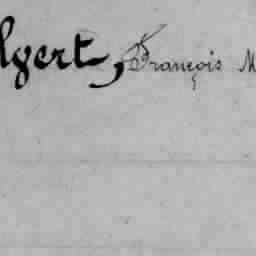 lgert, François M